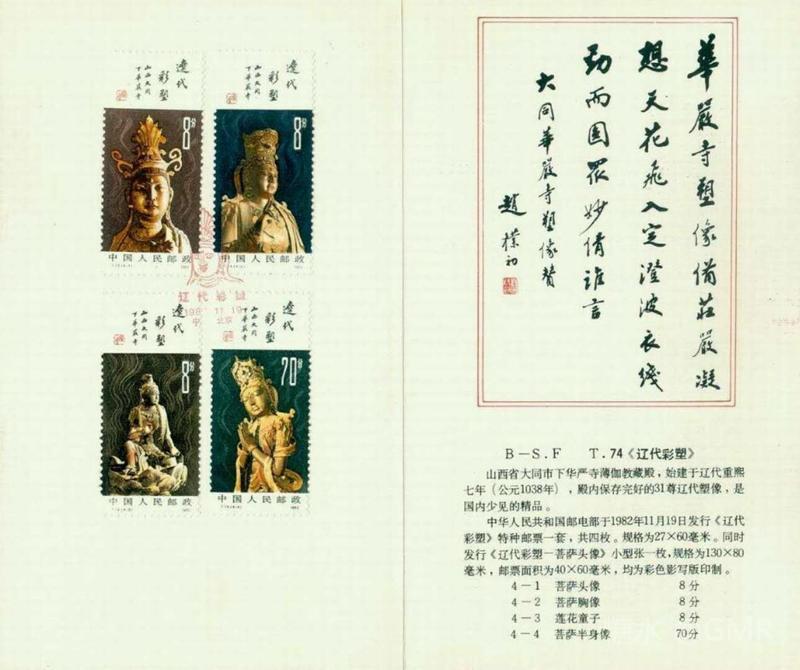 遼代
彩塑
山西大同
下華嚴寺
8分
中国人民邮政
遼代
彩塑
山西大同
下華嚴寺
8分
中国人民邮政
遼代
彩塑
山西大同
下華嚴寺
8分
中国人民邮政
遼代
彩塑
山西大同
下華嚴寺
70分
中国人民邮政
辽代彩塑
北京
華嚴寺塑像備莊嚴凝
想天花飛入定澄波衣綫
勁而圓眾妙倩誰言
大同華嚴寺塑像贊
趙樸初
B-S.F T.74《辽代彩塑》
山西省大同市下华严寺薄伽教藏殿，始建于辽代重熙
七年（公元1038年），殿内保存完好的31尊辽代塑像，是
国内少见的精品。
中华人民共和国邮电部于1982年11月19日发行《辽代
彩塑》特种邮票一套，共四枚。规格为27×60毫米。同时
发行《辽代彩塑—菩萨头像》小型张一枚，规格为130×80
毫米，邮票面积为40×60毫米，均为彩色影写版印制。
4-1 菩萨头像 8分
4-2 菩萨胸像 8分
4-3 莲花童子 8分
4-4 菩萨半身像 70分